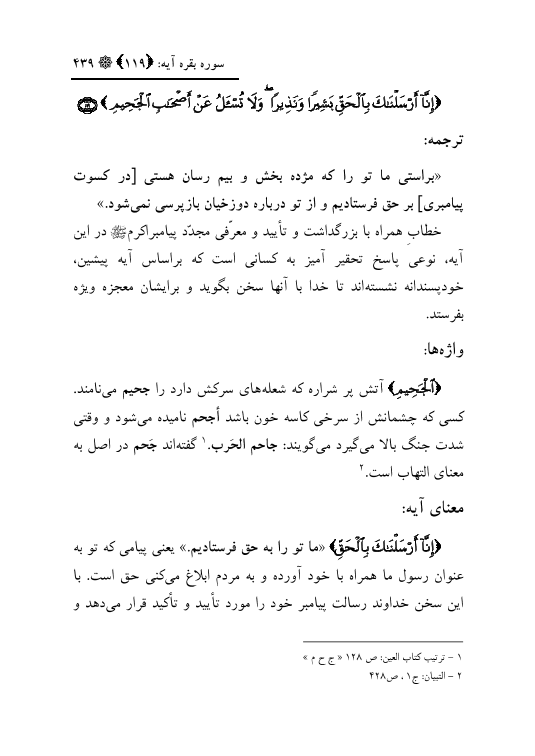 سوره بقره آیه: ﴿۱۱۹﴾ ۴۳۹
﴿إِنَّآ أَرۡسَلۡنَٰكَ بِٱلۡحَقِّ بَشِيرٗا وَنَذِيرٗاۖ وَلَا تُسۡـَٔلُ عَنۡ أَصۡحَٰبِ ٱلۡجَحِيمِ﴾ ۱۱۹
ترجمه:
«براستی ما تو را که مژده بخش و بیم رسان هستی [در کسوت
پیامبری] بر حق فرستادیم و از تو درباره دوزخیان بازپرسی نمی‌شود.»
خطابِ همراه با بزرگداشت و تأیید و معرّفی مجدّد پیامبراکرمﷺ در این
آیه، نوعی پاسخ تحقیر آمیز به کسانی است که براساس آیه پیشین،
خودپسندانه نشسته‌اند تا خدا با آنها سخن بگوید و برایشان معجزه ویژه
بفرستد.
واژه‌ها:
﴿ٱلۡجَحِيمِ﴾ آتش پر شراره که شعله‌های سرکش دارد را جحیم می‌نامند.
کسی که چشمانش از سرخی کاسه خون باشد أجحم نامیده می‌شود و وقتی
شدت جنگ بالا می‌گیرد می‌گویند: جاحم الحَرب.۱ گفته‌اند جَحم در اصل به
معنای التهاب است.۲
معنای آیه:
﴿إِنَّآ أَرۡسَلۡنَٰكَ بِٱلۡحَقِّ﴾ «ما تو را به حق فرستادیم.» یعنی پیامی که تو به
عنوان رسول ما همراه با خود آورده و به مردم ابلاغ می‌کنی حق است. با
این سخن خداوند رسالت پیامبر خود را مورد تأیید و تأکید قرار می‌دهد و
۱ – ترتیب کتاب العین: ص ۱۲۸ « ج ح م »
۲ – التبیان: ج۱ ، ص۴۲۸